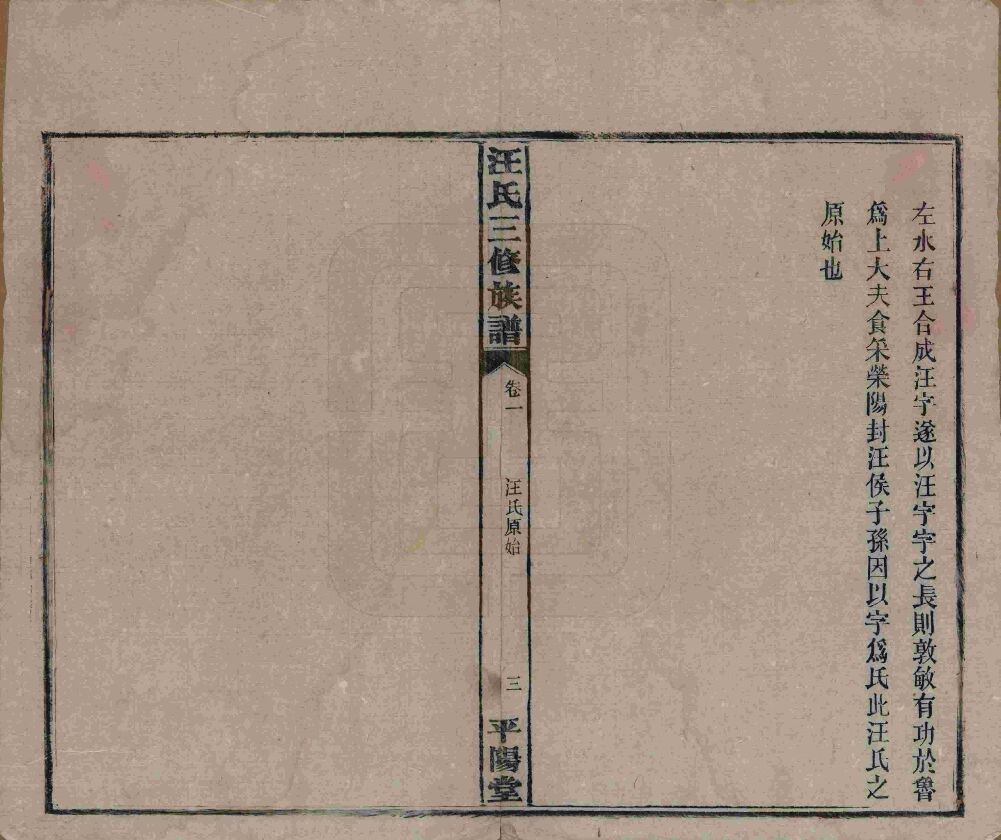 左水右王合成汪字遂以汪字字之長則敦敏有功於魯
爲上大夫食采榮陽封汪侯子孫因以字爲氏此汪氏之
原始也
汪氏三修族譜
卷一
汪氏原始
三
平陽堂